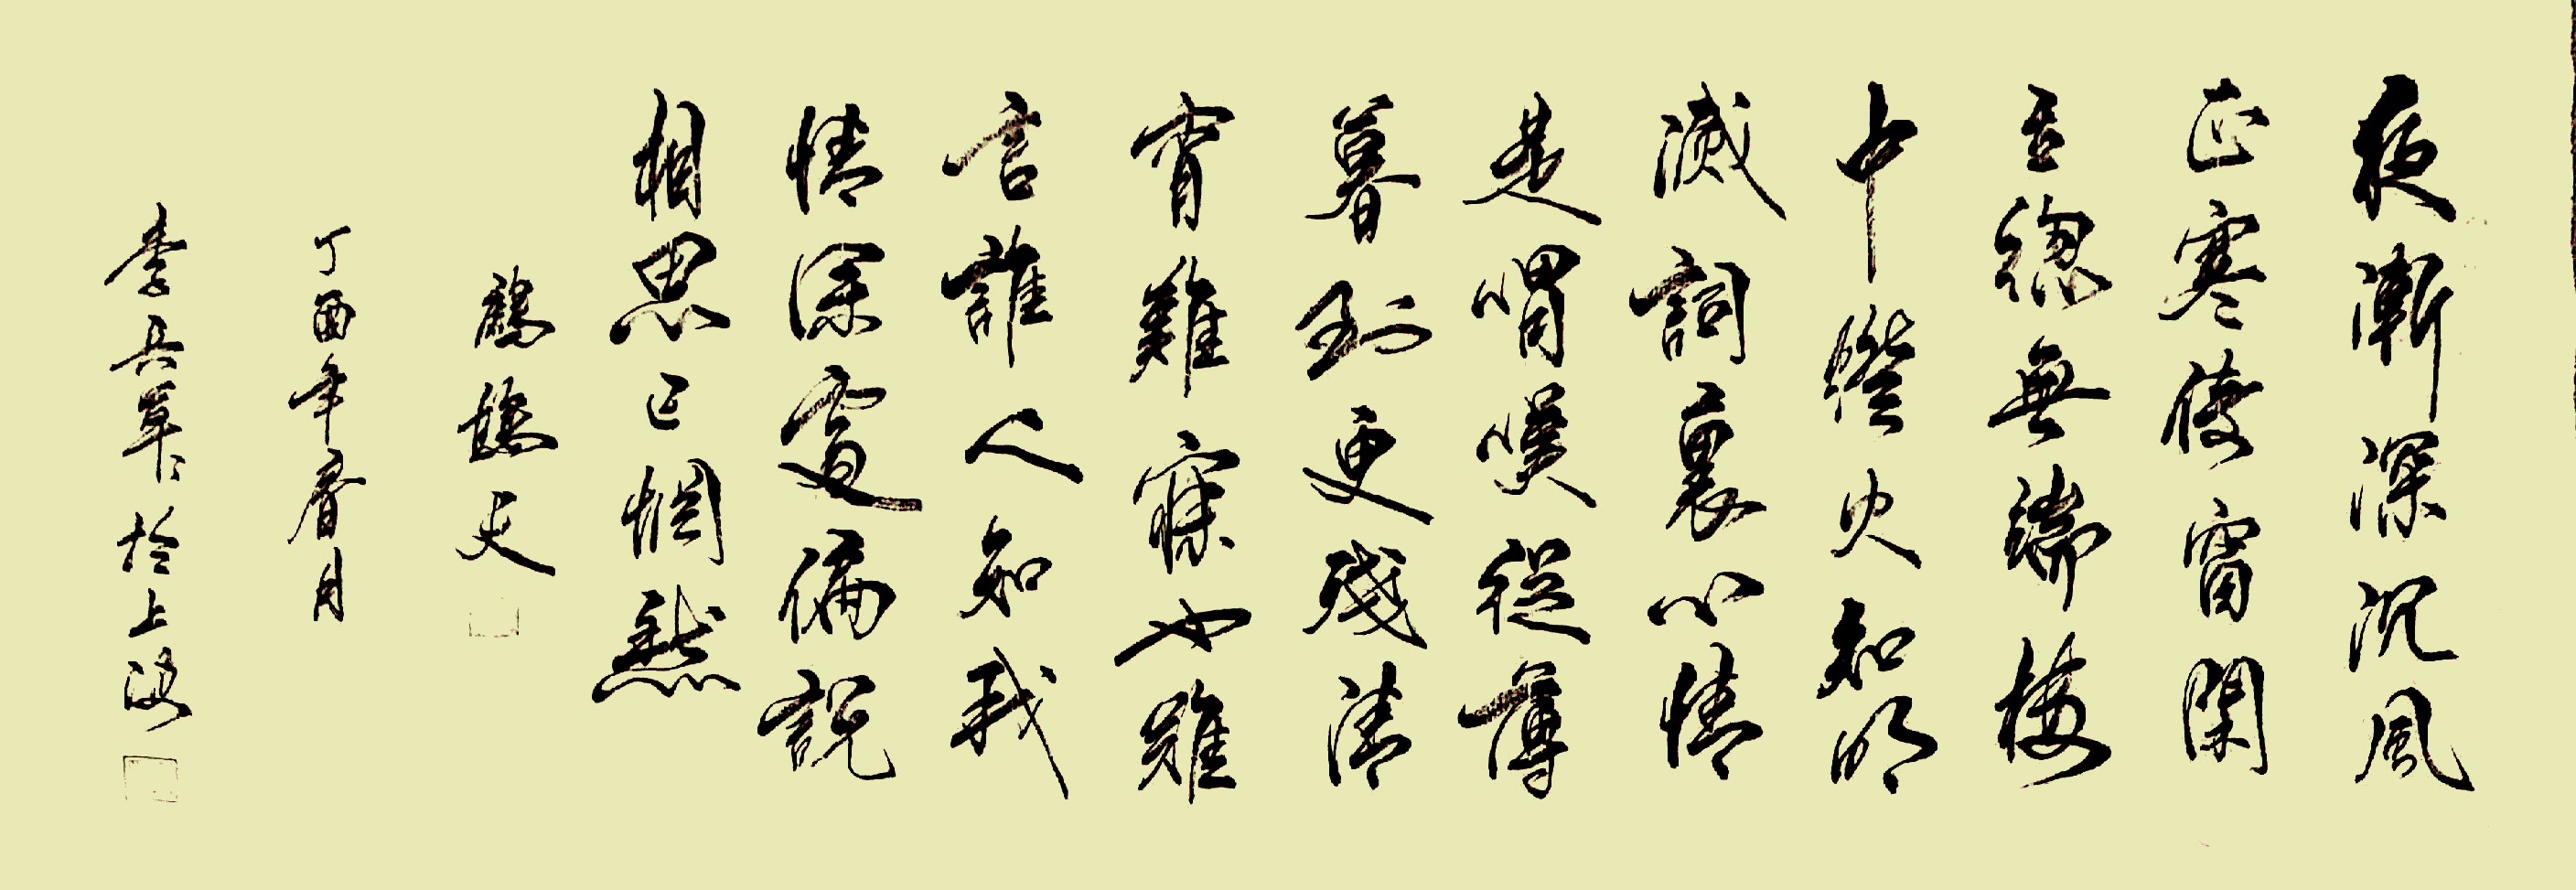 夜漸深沉風
正寒倚窗閑
立總無端樓
中燈火知明
滅詞裏心情
是喟嘆從薄
暮到更殘清
宵難寐也難
言誰人知我
情深處偏說
相思已惘然
鷓鴣天
丁酉年春月
李兵草於上海